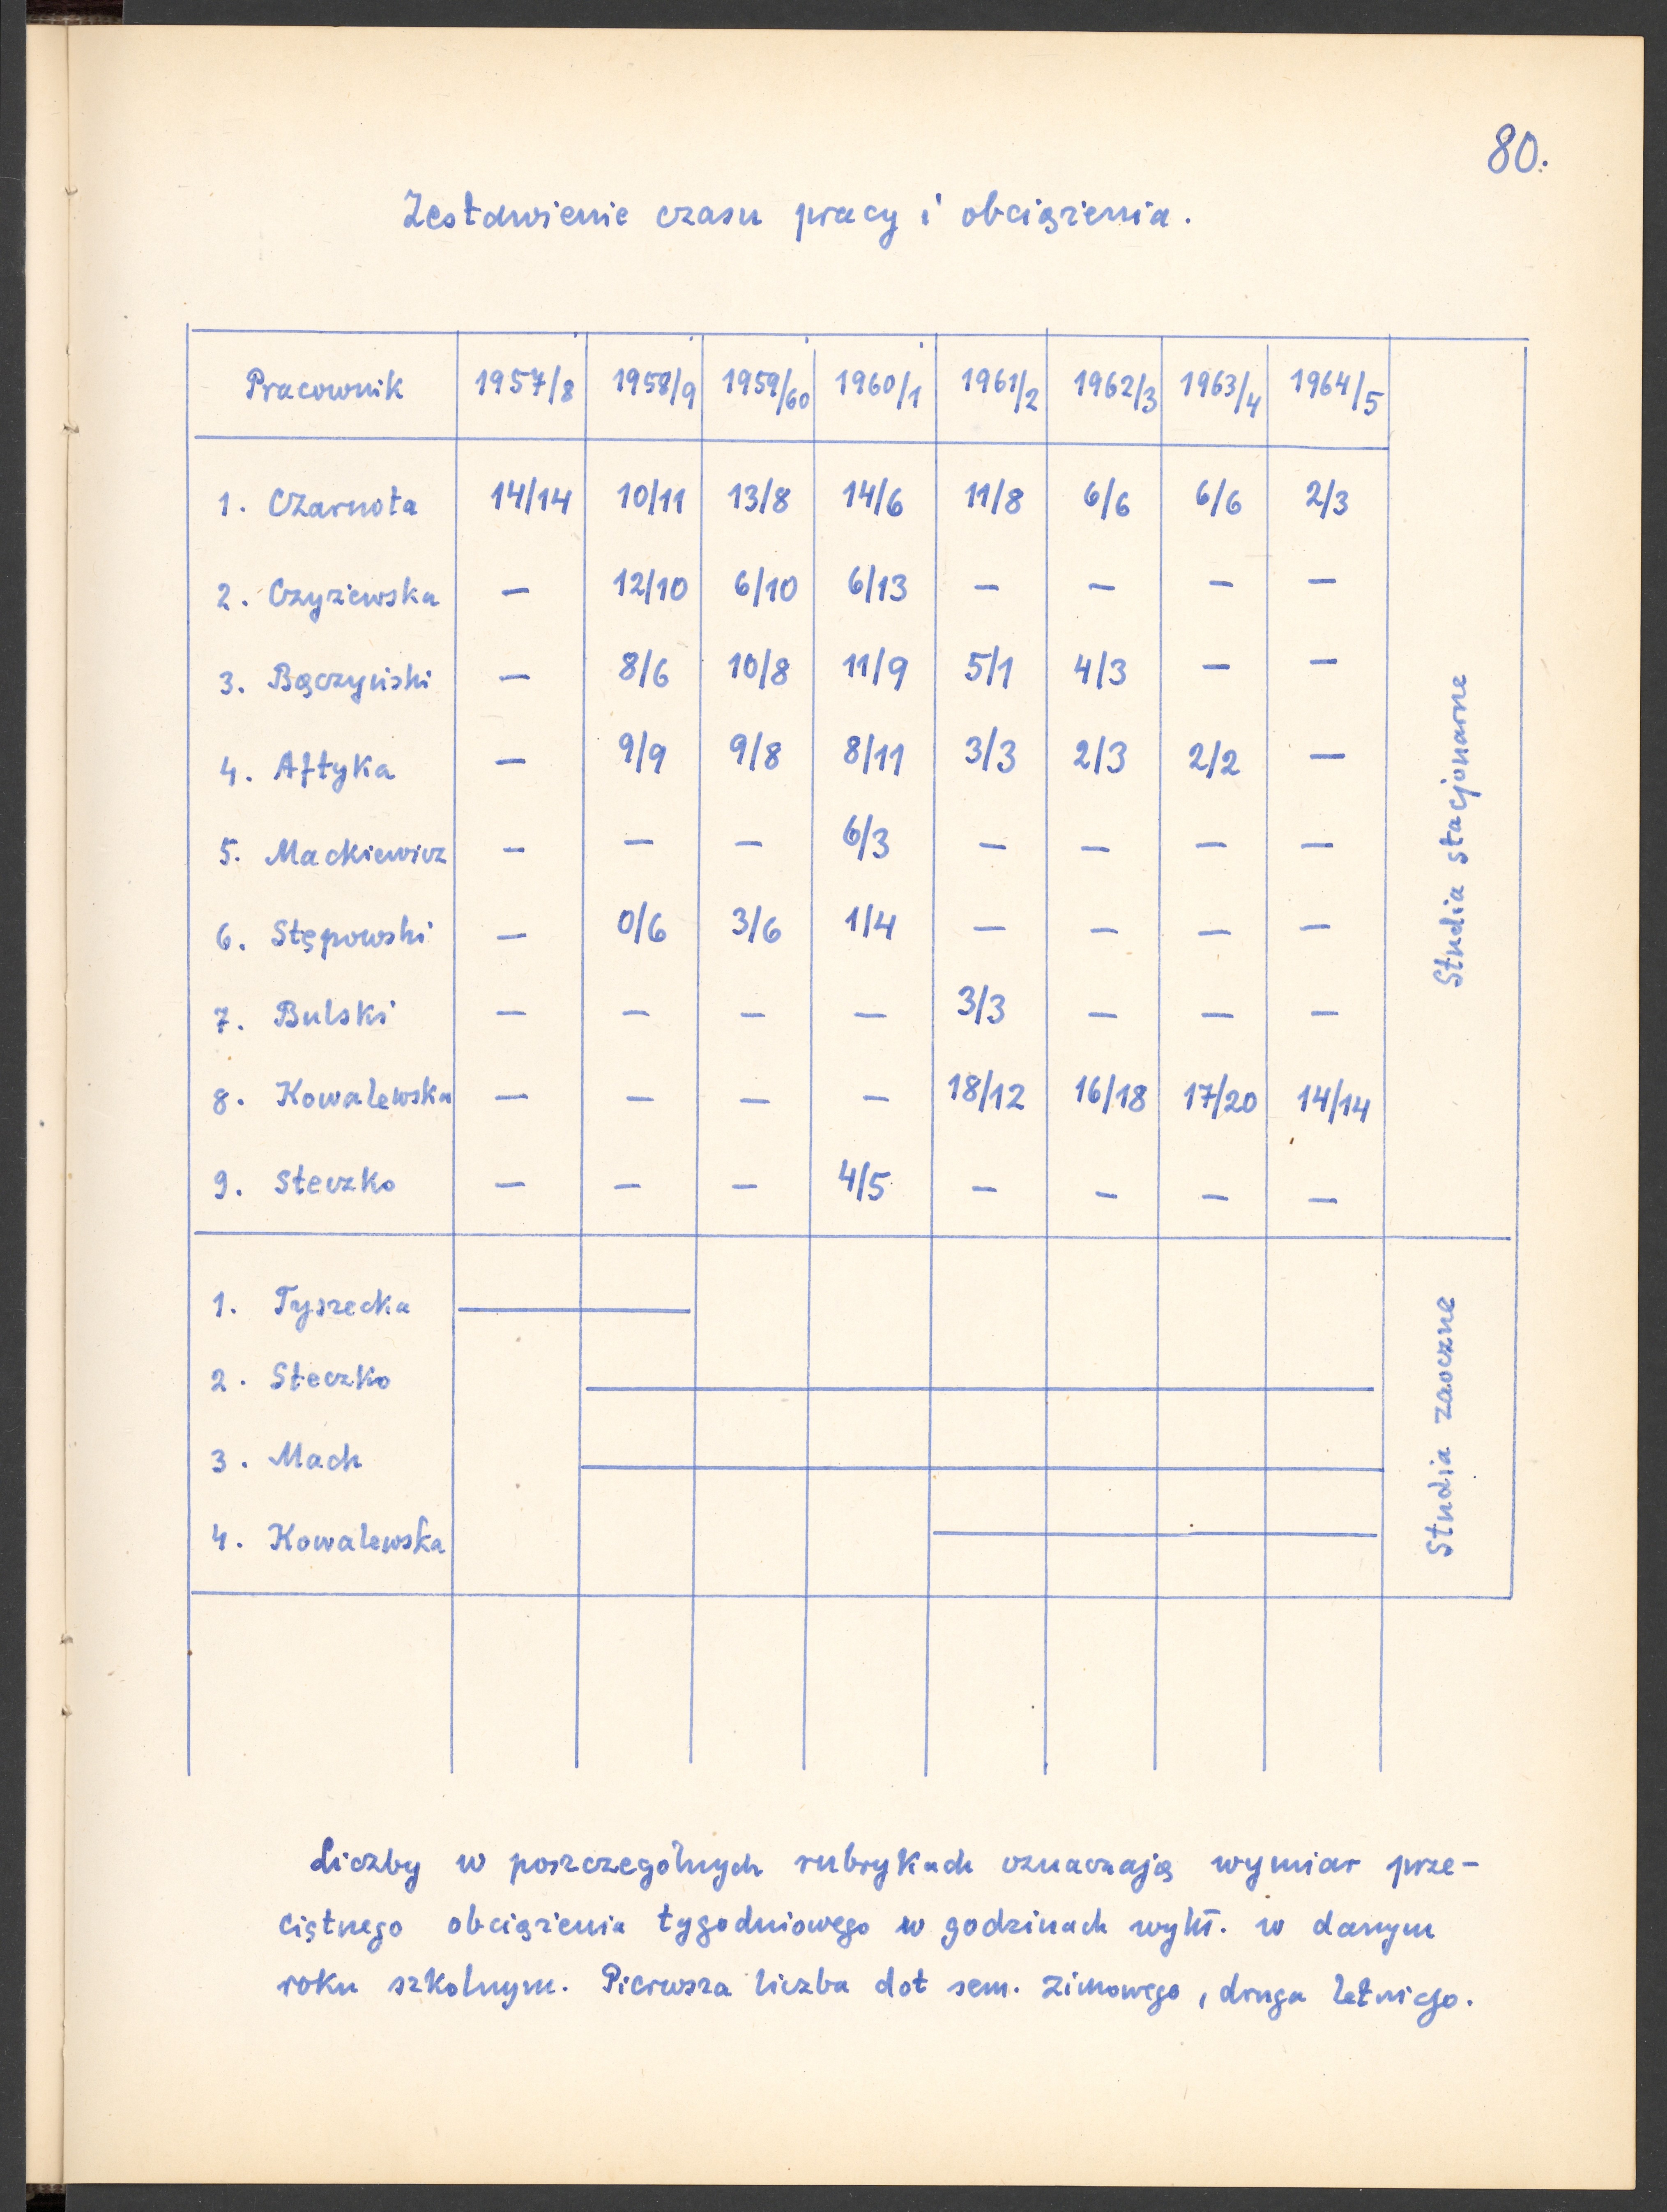 80.
Zestawienie czasu pracy i obciążenia.
Pracownik 1957/8 1958/9 1959/60 1960/1 1961/2 1962/3 1963/4 1964/5
1. Czarnota 14/14 10/11 13/8 14/6 11/8 6/6 6/6 2/3
2. Czyżewska — 12/10 6/10 6/13 — — — —
3. Bączyński — 8/6 10/8 11/9 5/1 4/3 — —
4. Aftyka — 9/9 9/8 8/11 3/3 2/3 2/2 —
5. Mackiewicz — — — 6/3 — — — —
6. Stępowski — 0/6 3/6 1/4 — — — —
7. Bulski — — — — 3/3 — — —
8. Kowalewska — — — — 18/12 16/18 17/20 14/14
9. Steczko — — — 4/5 — — — —
Studia stacjonarne
1. Tyszecka
2. Steczko
3. Mach
4. Kowalewska
Studia zaoczne
Liczby w poszczególnych rubrykach oznaczają wymiar prze-
ciętnego obciążenia tygodniowego w godzinach wykł. w danym
roku szkolnym. Pierwsza liczba dot sem. zimowego, druga letniego.